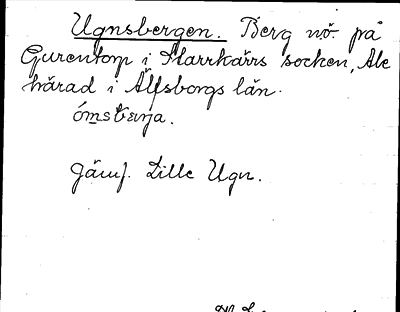 Ugnsbergen. Berg nö. på
Gurentorp i Starrkärrs socken, Ale
härad i Älfsborgs län.
Jämf. Lille Ugn.